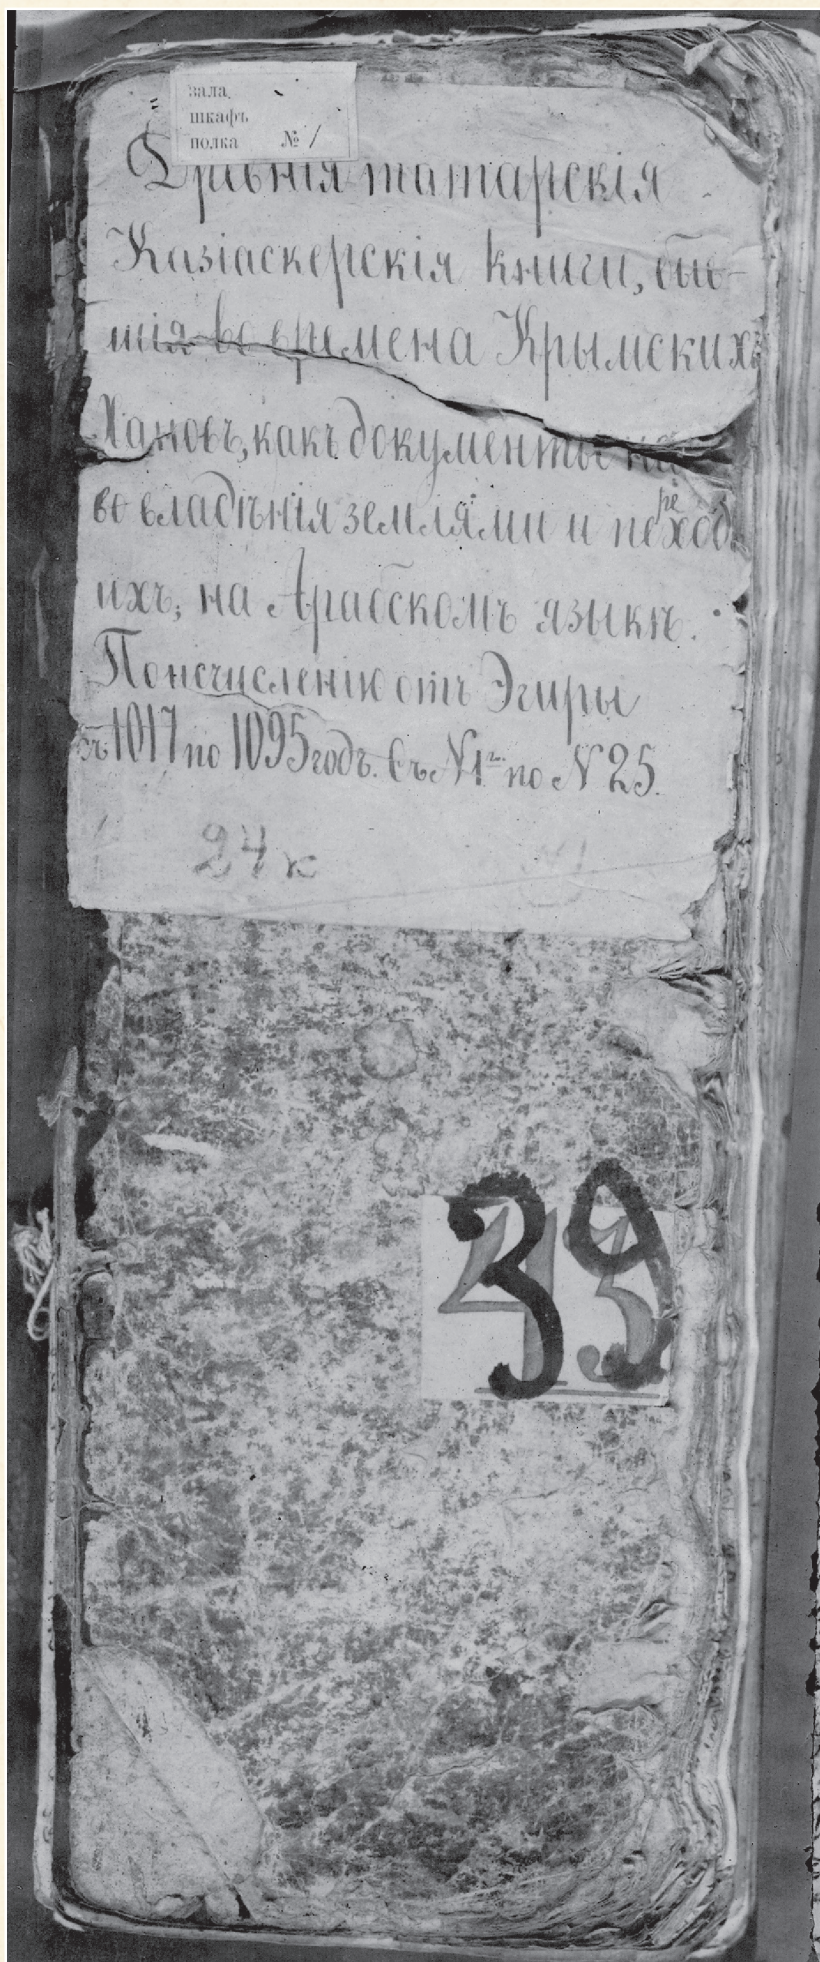 зала
шкафъ
полка № 1
Древнія татарскія
Казіаскерскія книги, быв-
шія во времена Крымскихъ
Хановъ, какъ документы на
во владѣнія землями и переход
ихъ, на Арабскомъ языкѣ.
По исчисленію отъ Эгиры
съ 1017 по 1095 годъ. Съ N 1го по N 25.
24 к
39